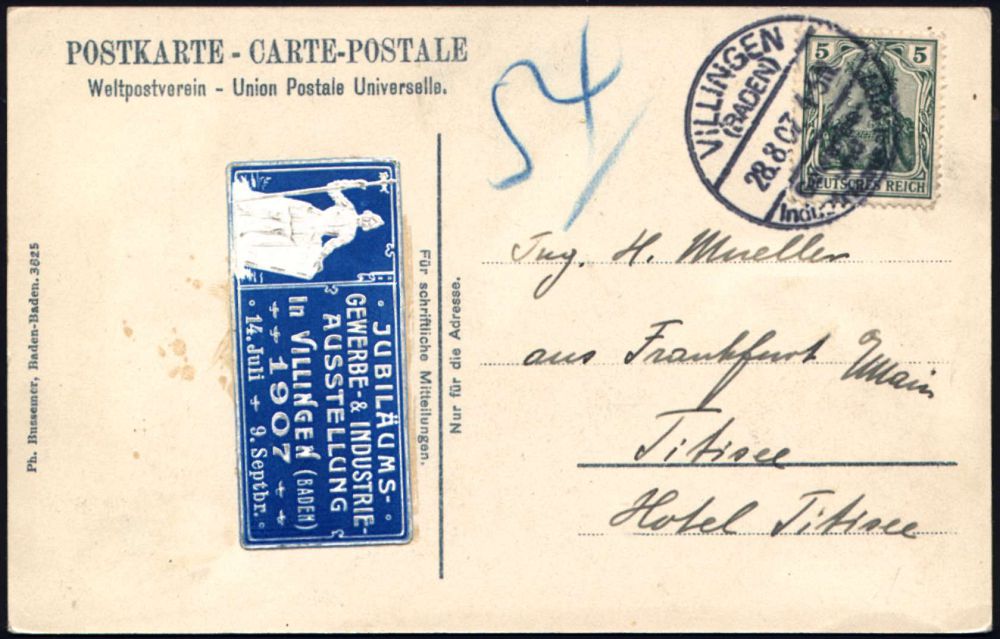 POSTKARTE - CARTE-POSTALE
Weltpostverein - Union Postale Universelle.
54
VILLINGEN
(BADEN)
28.8.07.
Indust
5 5
DEUTSCHES REICH
JUBILÄUMS-
GEWERBE- & INDUSTRIE-
AUSSTELLUNG
In VILLINGEN (BADEN)
1907
14. Juli + 9. Septbr.
Für schriftliche Mitteilungen.
Nur für die Adresse.
Ph. Bussemer, Baden-Baden. 3625
Ing. H. Mueller
aus Frankfurt a/Main
Titisee
Hotel Titisee